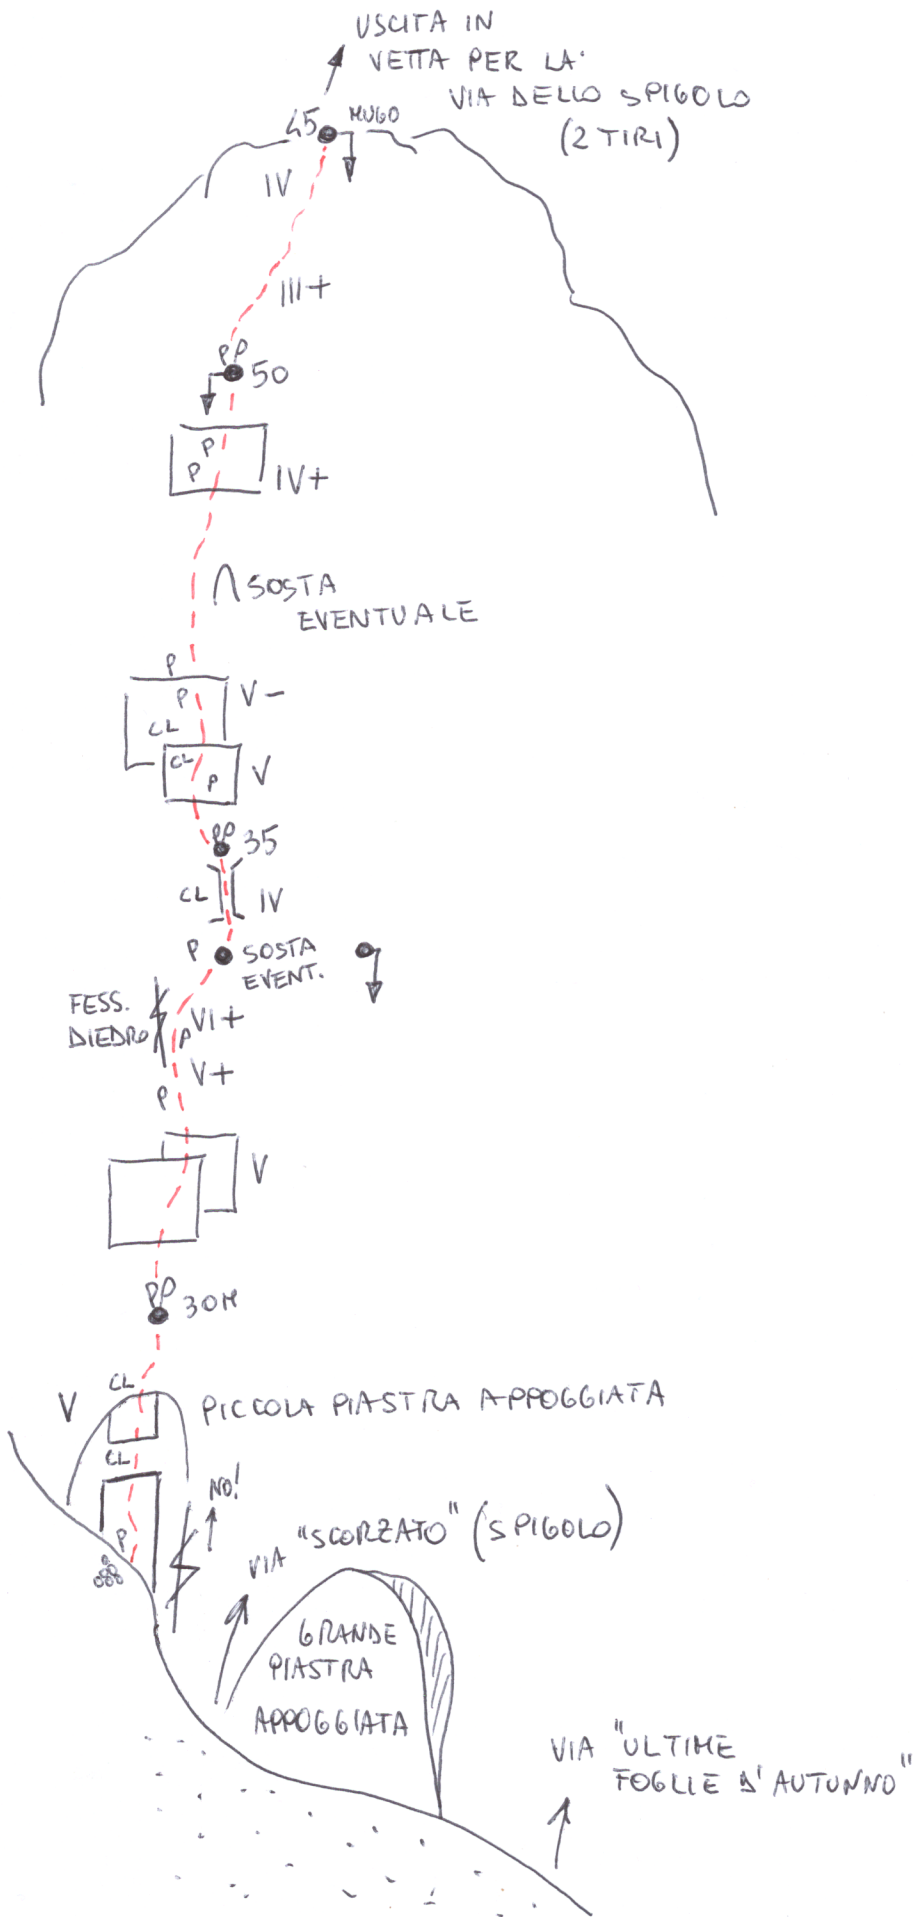 USCITA IN
VETTA PER LA
VIA DELLO SPIGOLO
(2 TIRI)
45 MUGO
IV
III+
PP
50
P
P
IV+
SOSTA
EVENTUALE
P
P V-
CL
CL V
P
PP 35
CL IV
P SOSTA
EVENT.
FESS.
DIEDRO
VI+
P
V+
P
V
PP 30M
CL
V PICCOLA PIASTRA APPOGGIATA
CL
NO!
P
VIA "SCORZATO" (SPIGOLO)
GRANDE
PIASTRA
APPOGGIATA
VIA "ULTIME
FOGLIE D'AUTUNNO"